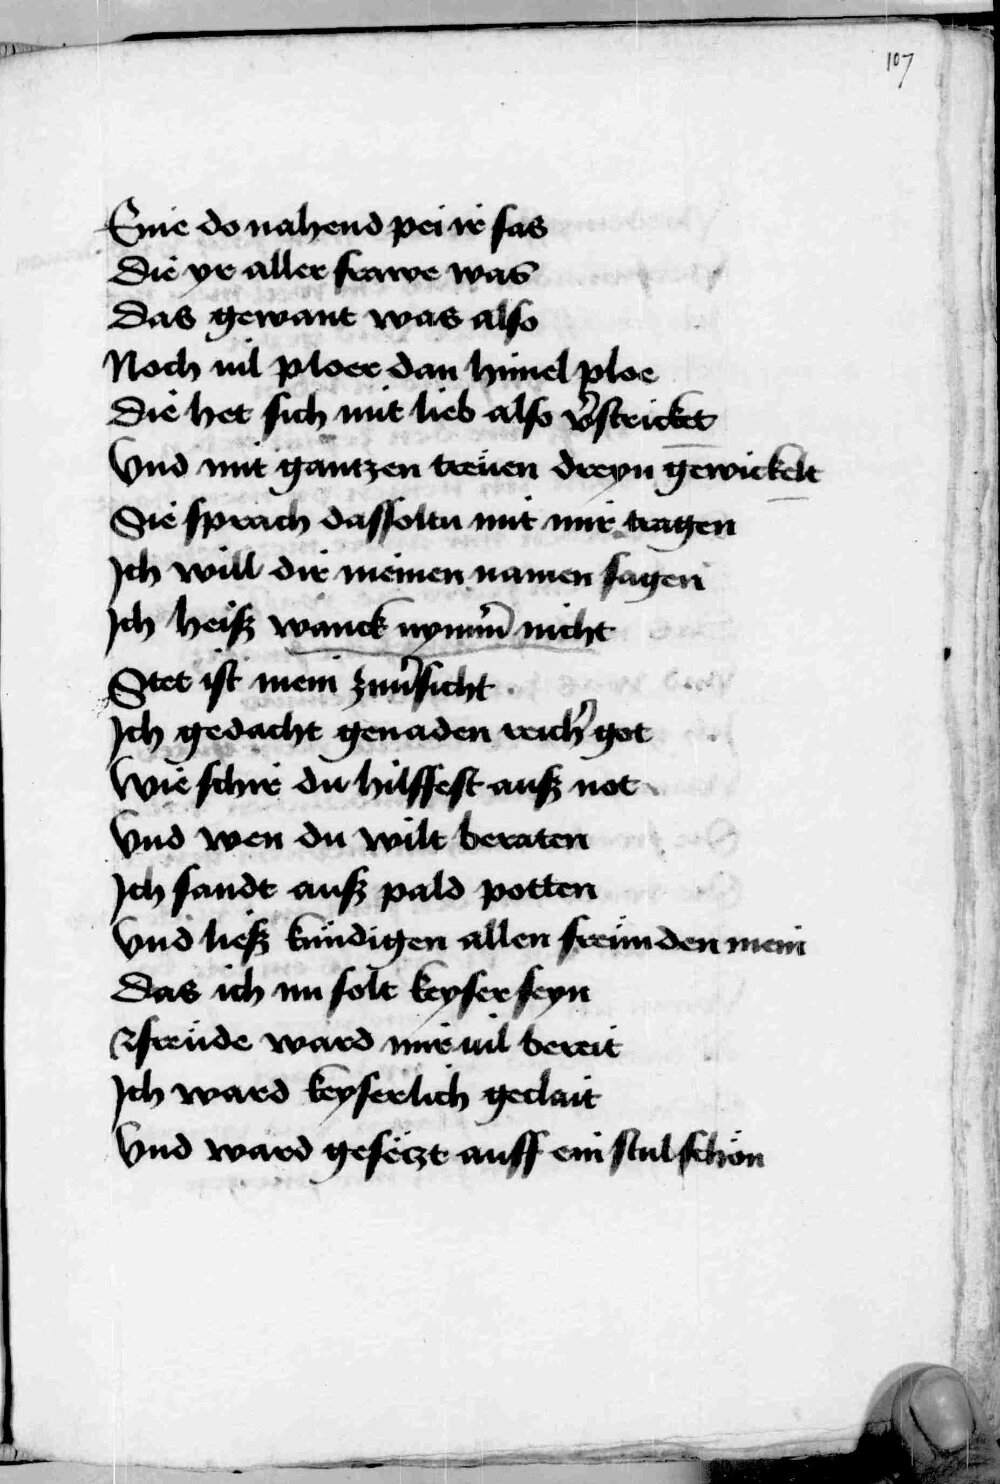 107
Eine do nahend pei ir sas
Die yr aller frawe was
Das gewant was also
Noch uil ploer dan himel ploe
Die het sich mit lieb also v̾stricket
Vnd mit gantzen treüen dreyn gewickelt
Sie sprach das soltu mit mir tragen
Ich will dir meinen namen sagen
Ich heiß wanck nym̄er nicht
Stet ist mein zuu̾sicht
Ich gedacht genaden reich̾ got
Wie schir du hilffest auß not
Vnd wen du wilt beraten
Ich sandt auß pald potten
Vnd ließ kündigen allen freünden mein
Das ich nu solt keyser seyn
freüde ward mir uil bereit
Ich ward keyserlich geclait
Vnd ward gesëczt auff ein stul schön